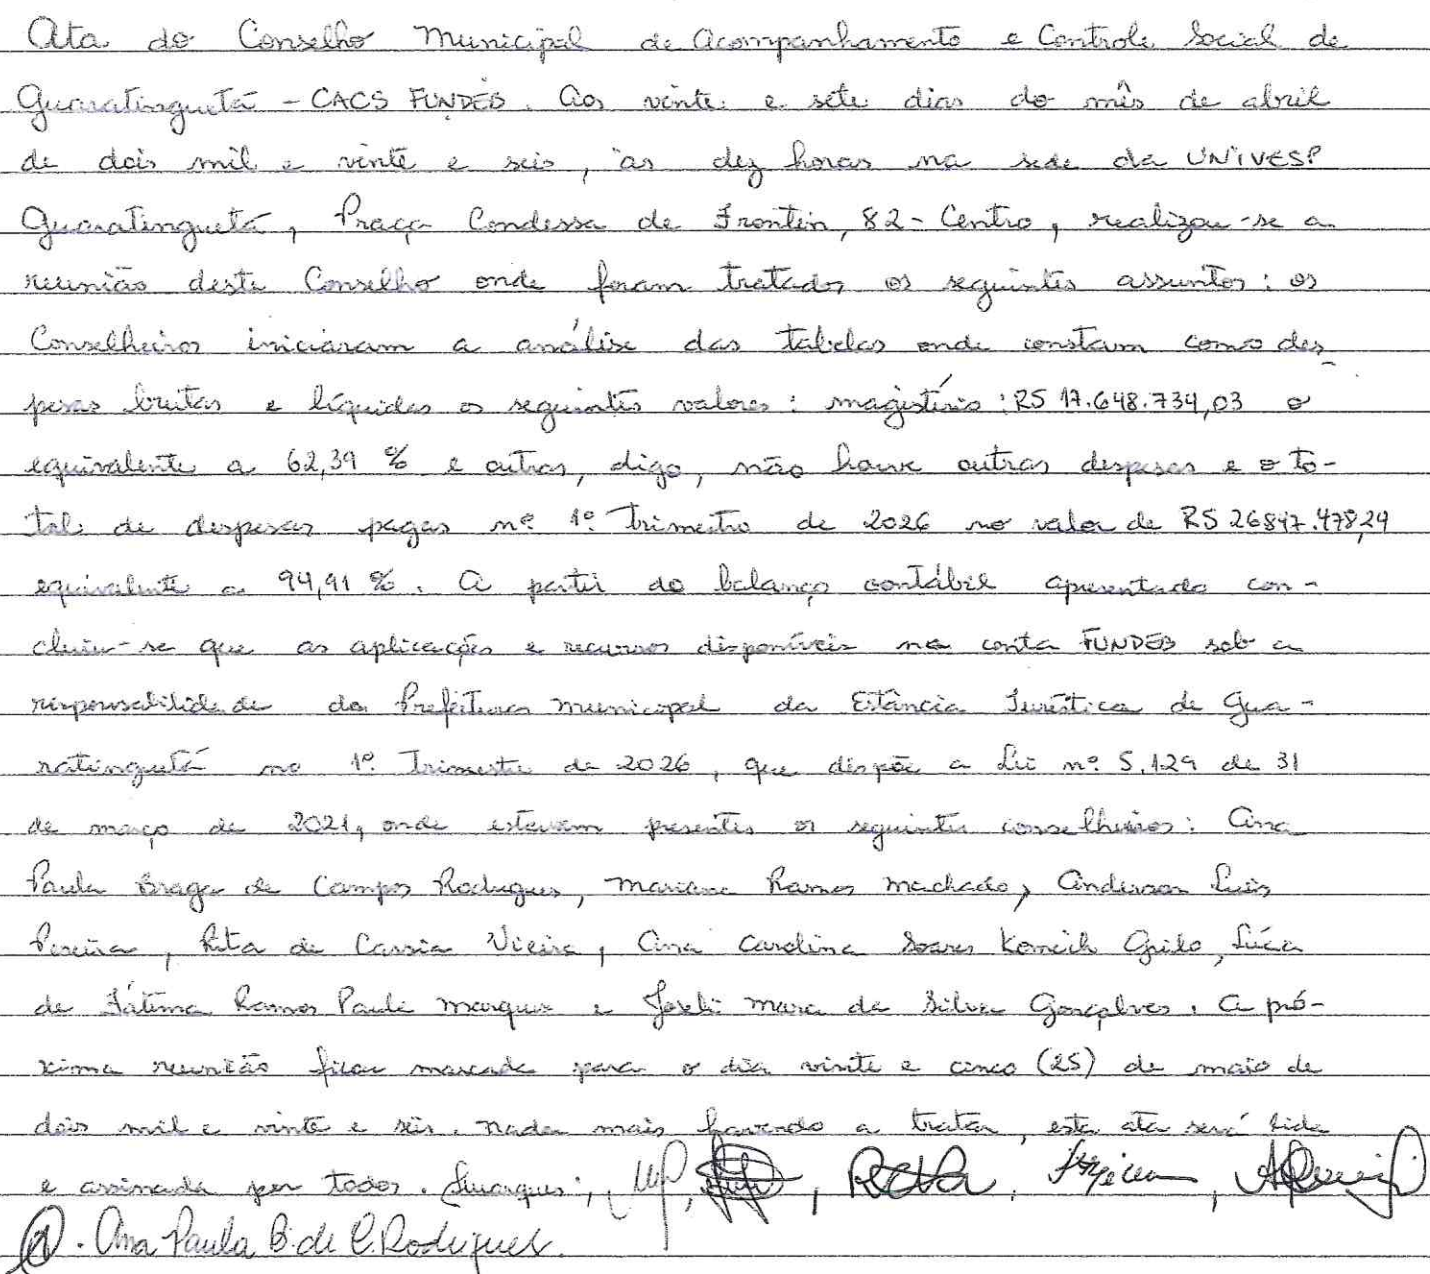 Ata do Conselho Municipal de Acompanhamento e Controle Social de
Guaratinguetá - CACS FUNDEB. Aos vinte e sete dias do mês de abril
de dois mil e vinte e seis, às dez horas na sede da UNIVESP
Guaratinguetá, Praça Condessa de Frontin, 82 - Centro, realizou-se a
reunião deste Conselho onde foram tratados os seguintes assuntos: os
Conselheiros iniciaram a análise das tabelas onde constam como des
pesas brutas e líquidas os seguintes valores: magistério: R$ 17.648.734,03 o
equivalente a 62,39 % e outras, digo, não houve outras despesas e o to-
tal de despesas pagas nº 1º Trimestre de 2026 no valor de R$ 26847.478,24
equivalente a 94,91 %. A partir do balanço contábil apresentado con-
cluiu-se que as aplicações e recursos disponíveis na conta FUNDEB sob a
responsabilidade da Prefeitura Municipal da Estância Turística de Gua-
ratinguetá no 1º Trimestre de 2026, que dispõe a Lei nº 5.129 de 31
de março de 2021, onde estavam presentes os seguintes conselheiros: Ana
Paula Braga de Campos Rodrigues, Mariana Ramos Machado, Anderson Luís
Pereira, Rita de Cassia Vieira, Ana Carolina Soares Guido, Lúcia
de Fátima Ramos Paula Marques e Joseli Mara da Silva Gonçalves. A pró-
xima reunião ficou marcada para o dia vinte e cinco (25) de maio de
dois mil e vinte e seis. Nada mais havendo a tratar, esta ata será lida
e assinada por todos. Lmarques;
Ana Paula B. de C. Rodrigues.